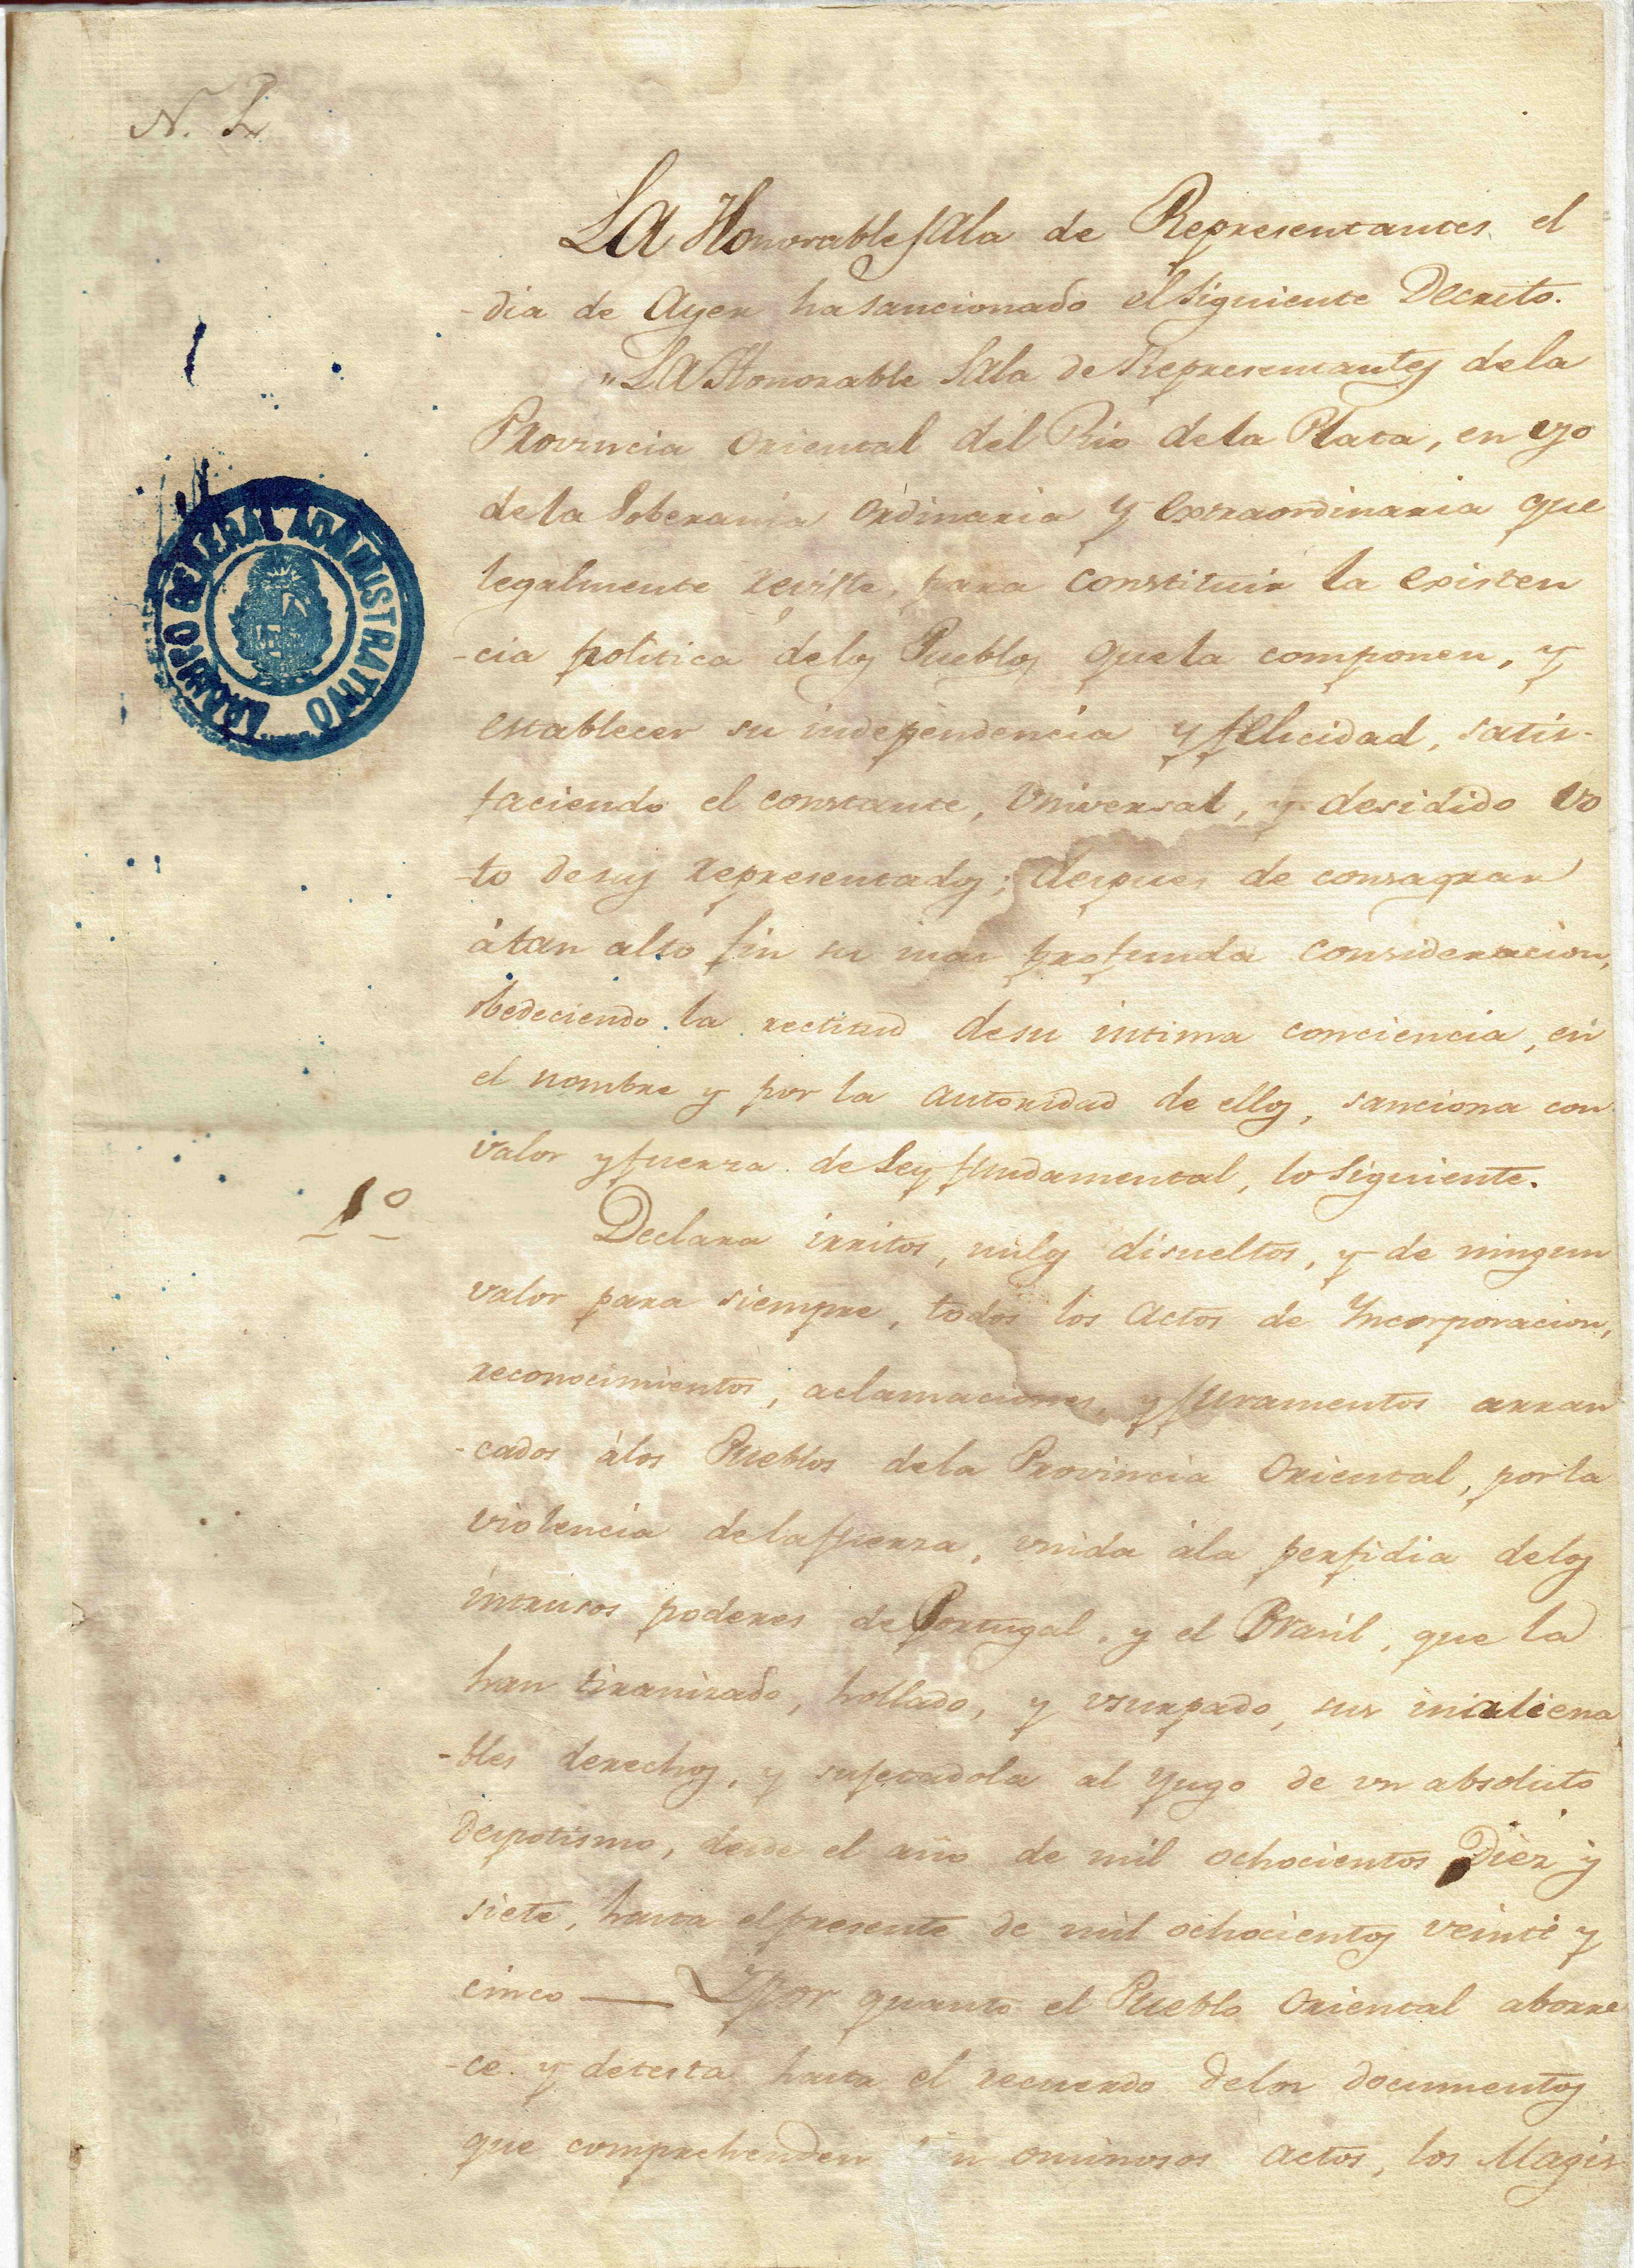 N. 2
La Honorable Sala de Representantes el
-dia de Ayer ha sancionado el siguiente Decreto.
"La Honorable Sala de Representantes de la
Provincia Oriental del Rio de la Plata, en uso
de la Soberania ordinaria y extraordinaria que
legalmente reviste, para constituir la existen
-cia politica de los Pueblos que la componen, y
establecer su independencia y felicidad, satis-
faciendo el constante, Universal, y desidido vo
-to de sus representados; despues de consagrar
á tan alto fin su mas profunda consideracion,
obedeciendo la rectitud de su intima conciencia, en
el nombre y por la autoridad de ellos, sanciona con
valor y fuerza de Ley fundamental, lo siguiente.
1º
Declara irritos, nulos disueltos, y de ningun
valor para siempre, todos los Actos de Incorporacion,
reconocimientos, aclamaciones, y juramentos arran
-cados álos Pueblos dela Provincia Oriental, por la
violencia dela fuerza, unida ála perfidia delos
intrusos poderes de Portugal, y el Brasil, que la
han tiranizado, hollado, y usurpado, sus inaliena
-bles derechos, y sujetadola al yugo de un absoluto
despotismo, desde el año de mil ochocientos Diez y
siete, hasta el presente de mil ochocientos veinte y
cinco — Y por quanto el Pueblo Oriental aborre
-ce y detesta hasta el recuerdo delos documentos
que comprehenden tan ominosos actos, los Magis
ARCHIVO GENERAL ADMINISTRATIVO